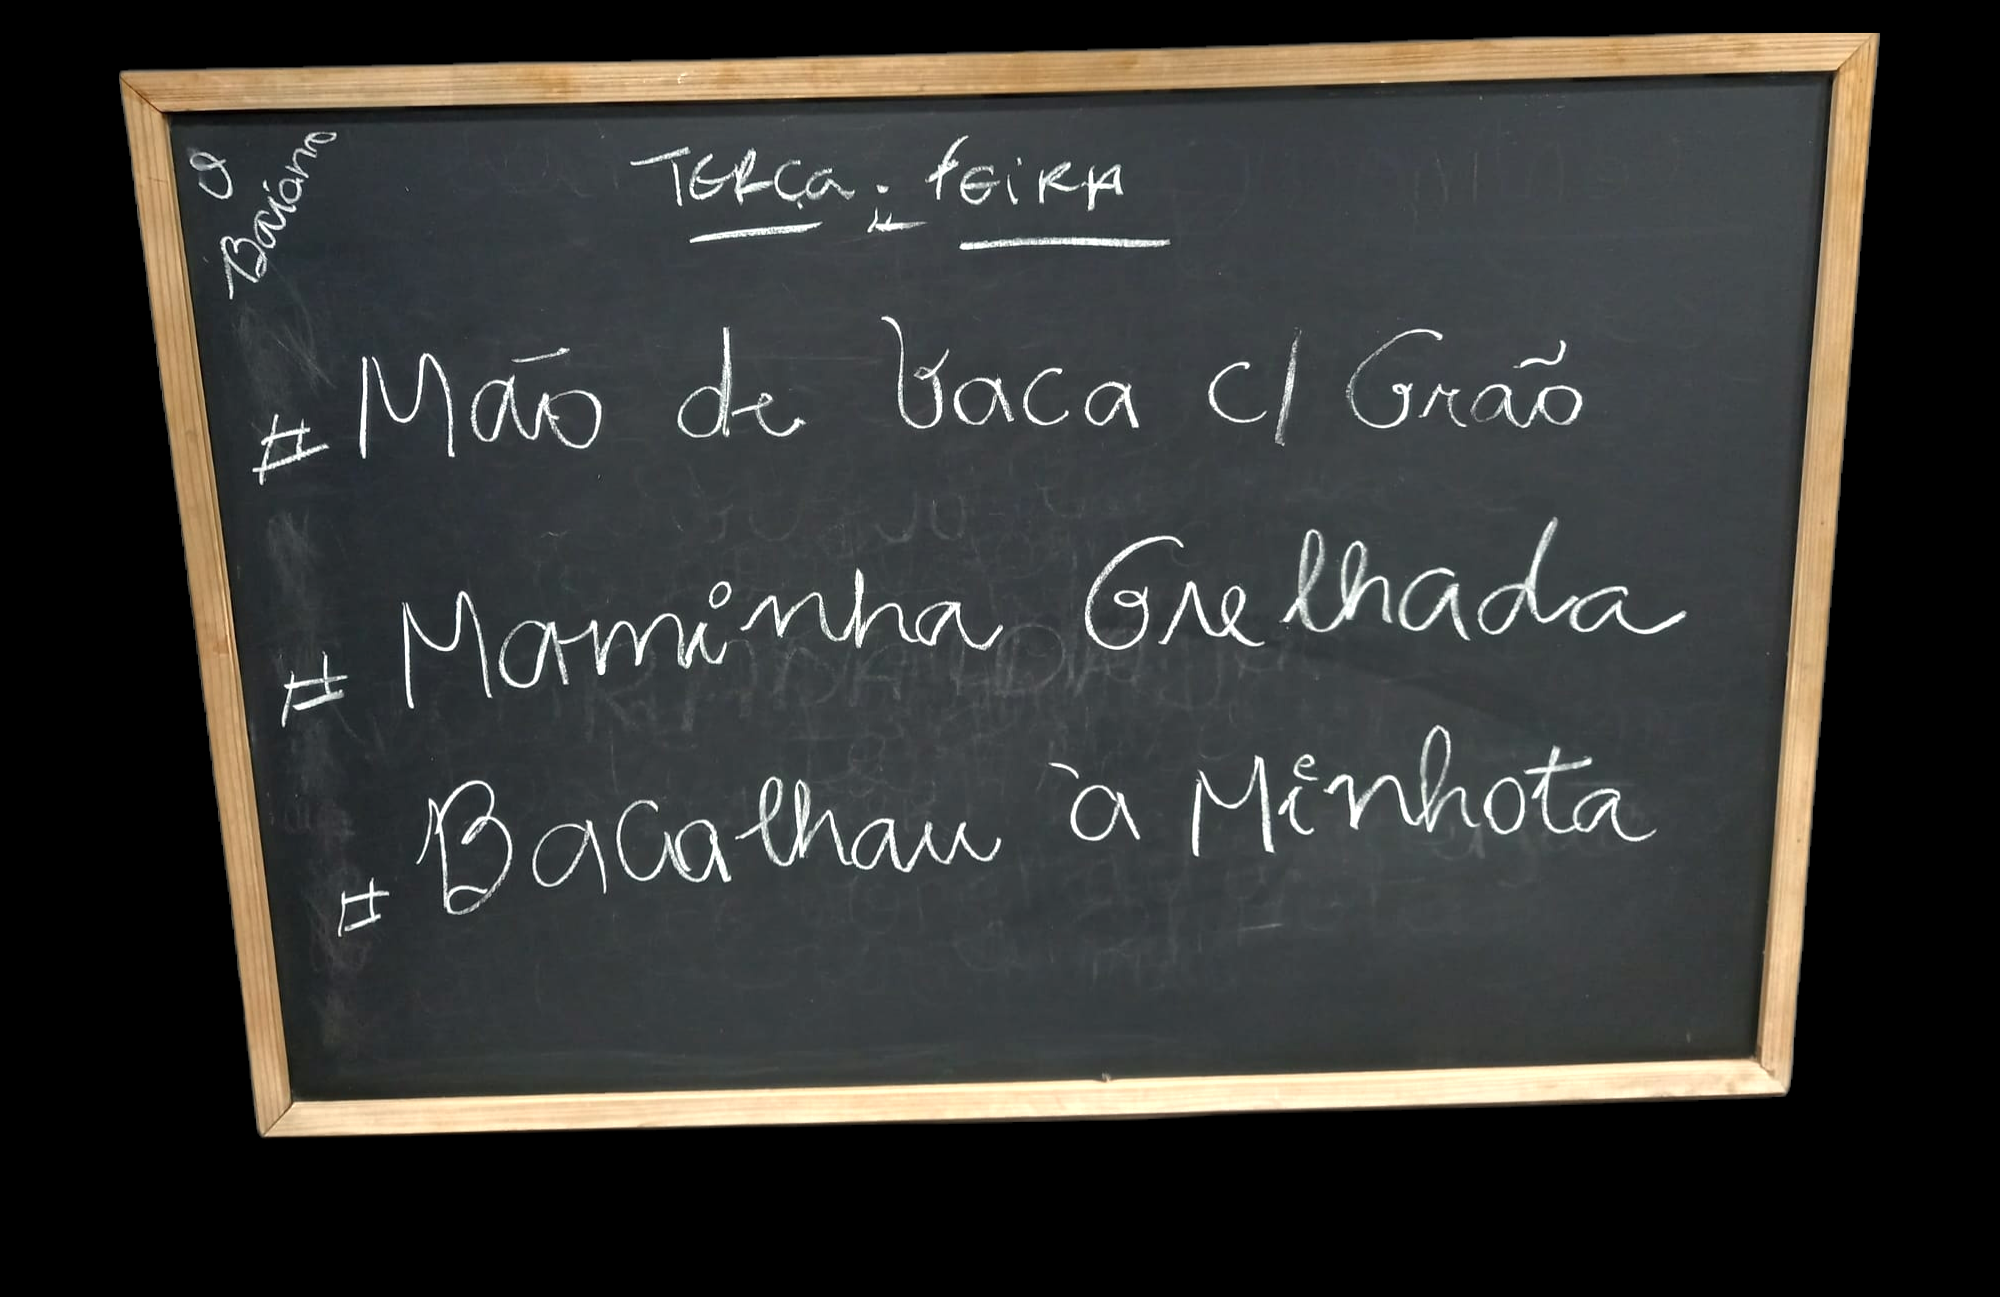 O
Baiano
TERÇA-FEIRA
# Mão de Vaca c/ Grão
# Maminha Grelhada
# Bacalhau à Minhota